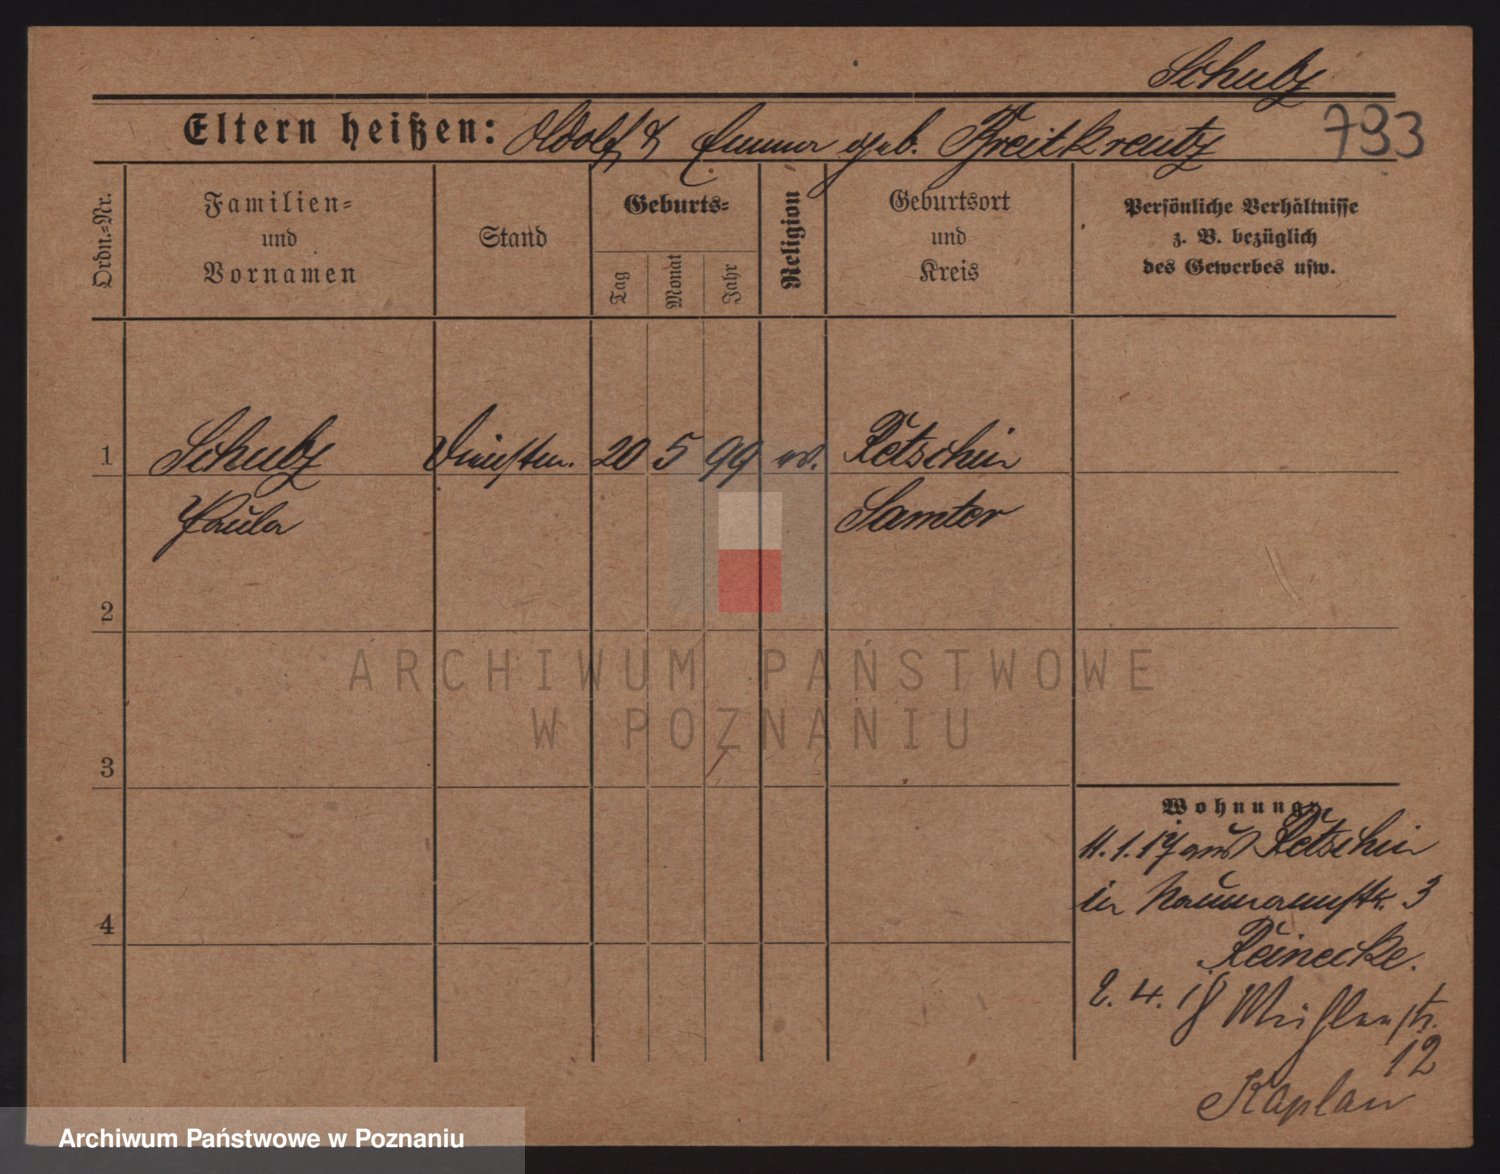 Schulz
Eltern heißen: Adolf & Emma geb. Breitkreutz
793
Ordn.-Nr.
Familien-
und
Vornamen
Stand
Geburts-
Tag
Monat
Jahr
Religion
Geburtsort
und
Kreis
Persönliche Verhältnisse
z. B. bezüglich
des Gewerbes usw.
1
Schulz
Dienstm.
20
5
99
ev.
Retschin
Paula
Samter
2
ARCHIWUM PAŃSTWOWE
W POZNANIU
3
Wohnung:
11.1.17 aus Retschin
in Naumannstr. 3
4
Reinecke.
2. 4. 18 Mühlenstr.
12
Kaplan
Archiwum Państwowe w Poznaniu